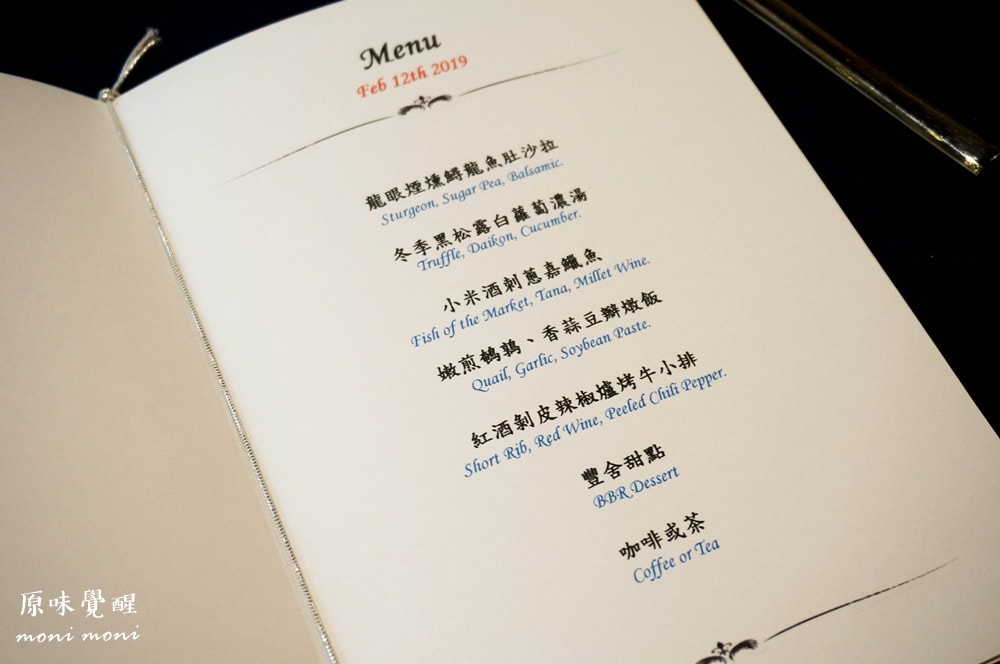 Menu
Feb 12th 2019
龍眼煙燻鱘龍魚肚沙拉
Sturgeon, Sugar Pea, Balsamic.
冬季黑松露白蘿蔔濃湯
Truffle, Daikon, Cucumber.
小米酒刺蔥嘉鱲魚
Fish of the Market, Tana, Millet Wine.
嫩煎鵪鶉、香蒜豆瓣燉飯
Quail, Garlic, Soybean Paste.
紅酒剝皮辣椒爐烤牛小排
Short Rib, Red Wine, Peeled Chili Pepper.
豐舍甜點
BBR Dessert
咖啡或茶
Coffee or Tea
原味覺醒
moni moni